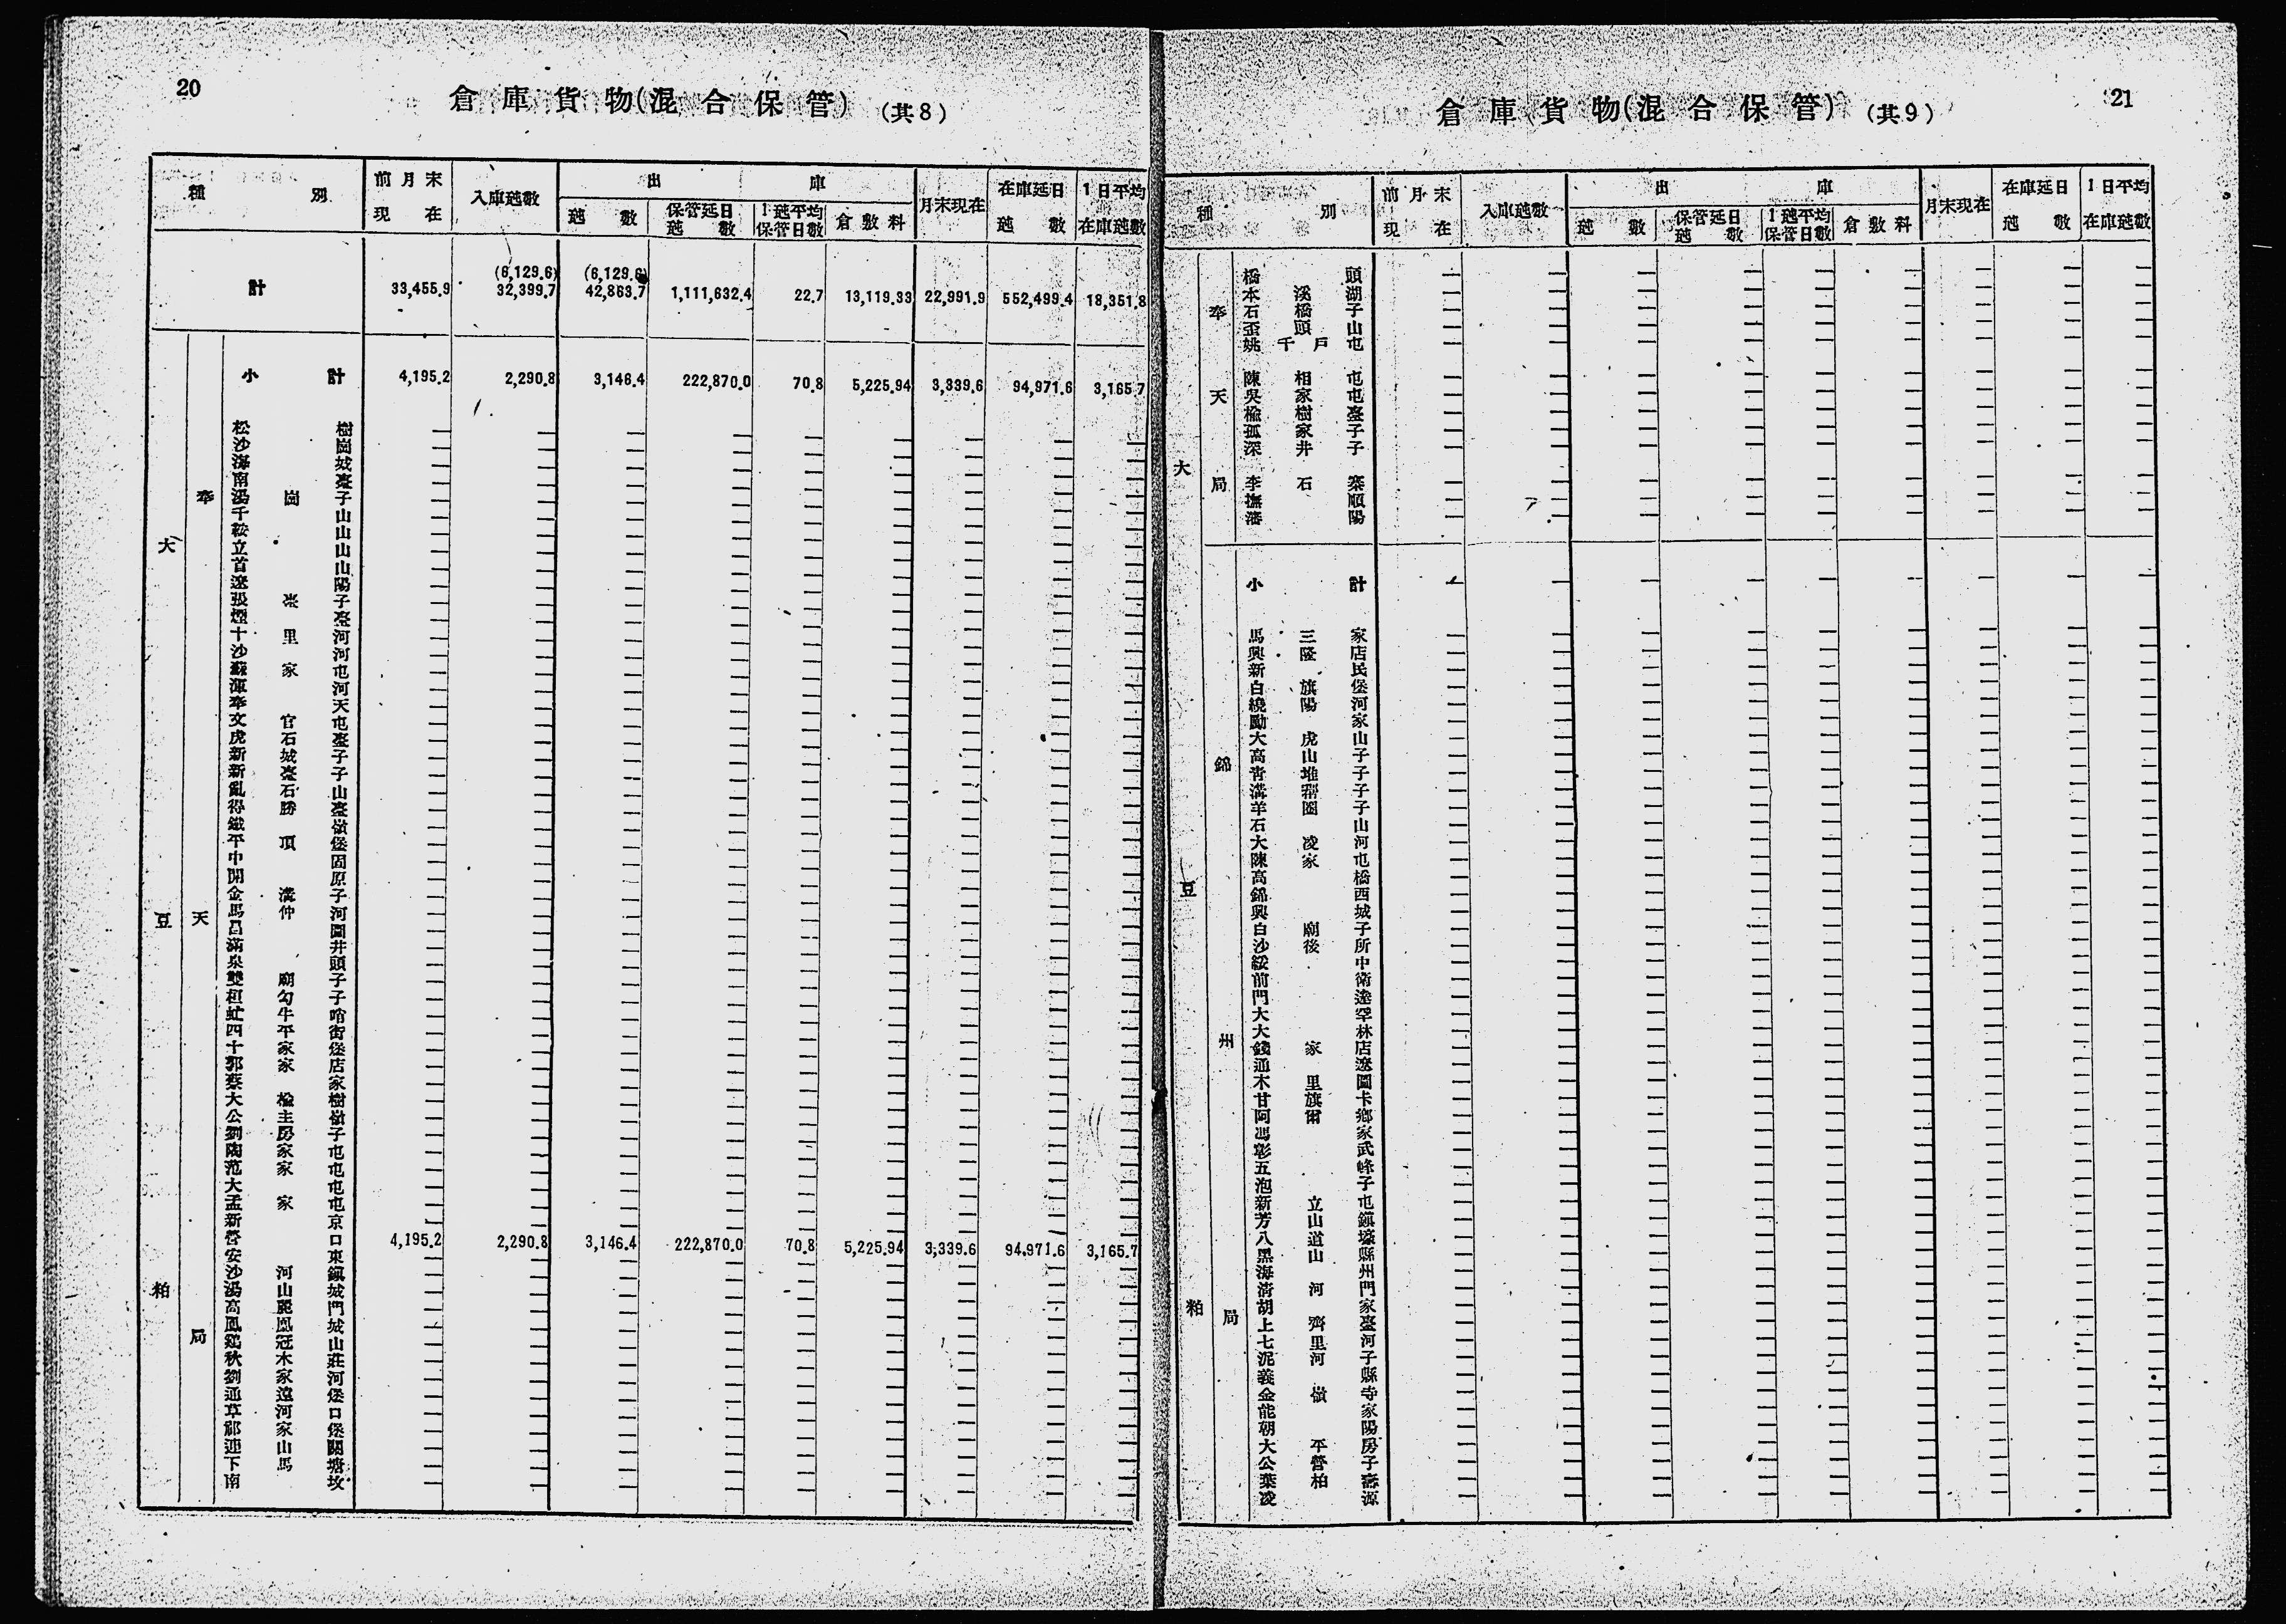 20
倉庫貨物(混合保管) (其8)
種別 前月末現在 入庫瓲數 出庫 月末現在 在庫延日瓲數 1日平均在庫瓲數
瓲數 保管延日瓲數 1瓲平均保管日數 倉敷料
(6,129.6) (6,129.6)
計 33,455.9 32,399.7 42,863.7 1,111,632.4 22.7 13,119.33 22,991.9 552,499.4 18,351.8
大豆粕
奉天局
小計 4,195.2 2,290.8 3,146.4 222,870.0 70.8 5,225.94 3,339.6 94,971.6 3,165.7
松樹 — — — — — — — — —
沙崗 — — — — — — — — —
海城 — — — — — — — — —
南臺 — — — — — — — — —
湯崗子 — — — — — — — — —
千山 — — — — — — — — —
鞍山 — — — — — — — — —
立山 — — — — — — — — —
首山 — — — — — — — — —
遼陽 — — — — — — — — —
張臺子 — — — — — — — — —
煙臺 — — — — — — — — —
十里河 — — — — — — — — —
沙河 — — — — — — — — —
蘇家屯 — — — — — — — — —
渾河 — — — — — — — — —
奉天 — — — — — — — — —
文官屯 — — — — — — — — —
虎石臺 — — — — — — — — —
新城子 — — — — — — — — —
新臺子 — — — — — — — — —
亂石山 — — — — — — — — —
得勝臺 — — — — — — — — —
鐵嶺 — — — — — — — — —
平頂堡 — — — — — — — — —
中固 — — — — — — — — —
開原 — — — — — — — — —
金溝子 — — — — — — — — —
馬仲河 — — — — — — — — —
昌圖 — — — — — — — — —
滿井 — — — — — — — — —
泉頭 — — — — — — — — —
雙廟子 — — — — — — — — —
桓勾子 — — — — — — — — —
虻牛哨 — — — — — — — — —
四平街 — — — — — — — — —
十家堡 — — — — — — — — —
郭家店 — — — — — — — — —
蔡家 — — — — — — — — —
大楡樹 — — — — — — — — —
公主嶺 — — — — — — — — —
劉房子 — — — — — — — — —
陶家屯 — — — — — — — — —
范家屯 — — — — — — — — —
大屯 — — — — — — — — —
孟家屯 — — — — — — — — —
新京 — — — — — — — — —
營口 4,195.2 2,290.8 3,146.4 222,870.0 70.8 5,225.94 3,339.6 94,971.6 3,165.7
安東 — — — — — — — — —
沙河鎭 — — — — — — — — —
湯山城 — — — — — — — — —
高麗門 — — — — — — — — —
鳳凰城 — — — — — — — — —
鷄冠山 — — — — — — — — —
秋木莊 — — — — — — — — —
劉家河 — — — — — — — — —
通遠堡 — — — — — — — — —
草河口 — — — — — — — — —
祁家堡 — — — — — — — — —
連山關 — — — — — — — — —
下馬塘 — — — — — — — — —
南坟 — — — — — — — — —
21
倉庫貨物(混合保管) (其9)
種別 前月末現在 入庫瓲數 出庫 月末現在 在庫延日瓲數 1日平均在庫瓲數
瓲數 保管延日瓲數 1瓲平均保管日數 倉敷料
大豆粕
奉天局
橋頭 — — — — — — — — —
本溪湖 — — — — — — — — —
石橋子 — — — — — — — — —
歪頭山 — — — — — — — — —
姚千戶屯 — — — — — — — — —
陳相屯 — — — — — — — — —
吳家屯 — — — — — — — — —
楡樹臺 — — — — — — — — —
孤家子 — — — — — — — — —
深井子 — — — — — — — — —
李石寨 — — — — — — — — —
撫順 — — — — — — — — —
瀋陽 — — — — — — — — —
錦州局
小計 — — — — — — — — —
馬三家 — — — — — — — — —
興隆店 — — — — — — — — —
新民 — — — — — — — — —
白旗堡 — — — — — — — — —
繞陽河 — — — — — — — — —
勵家 — — — — — — — — —
大虎山 — — — — — — — — —
高山子 — — — — — — — — —
青堆子 — — — — — — — — —
溝幇子 — — — — — — — — —
羊圈子 — — — — — — — — —
石山 — — — — — — — — —
大凌河 — — — — — — — — —
陳家屯 — — — — — — — — —
高橋 — — — — — — — — —
錦西 — — — — — — — — —
興城 — — — — — — — — —
白廟子 — — — — — — — — —
沙後所 — — — — — — — — —
綏中 — — — — — — — — —
前衛 — — — — — — — — —
門達 — — — — — — — — —
大罕 — — — — — — — — —
大林 — — — — — — — — —
錢家店 — — — — — — — — —
通遼 — — — — — — — — —
木里圖 — — — — — — — — —
甘旗卡 — — — — — — — — —
阿爾鄕 — — — — — — — — —
馮家 — — — — — — — — —
彰武 — — — — — — — — —
五峰 — — — — — — — — —
泡子 — — — — — — — — —
新立屯 — — — — — — — — —
芳山鎭 — — — — — — — — —
八道壕 — — — — — — — — —
黑山縣 — — — — — — — — —
海州 — — — — — — — — —
淸河門 — — — — — — — — —
胡家 — — — — — — — — —
上齊臺 — — — — — — — — —
七里河 — — — — — — — — —
泥河子 — — — — — — — — —
義縣 — — — — — — — — —
金嶺寺 — — — — — — — — —
能家 — — — — — — — — —
朝陽 — — — — — — — — —
大平房 — — — — — — — — —
公營子 — — — — — — — — —
葉柏壽 — — — — — — — — —
凌源 — — — — — — — — —